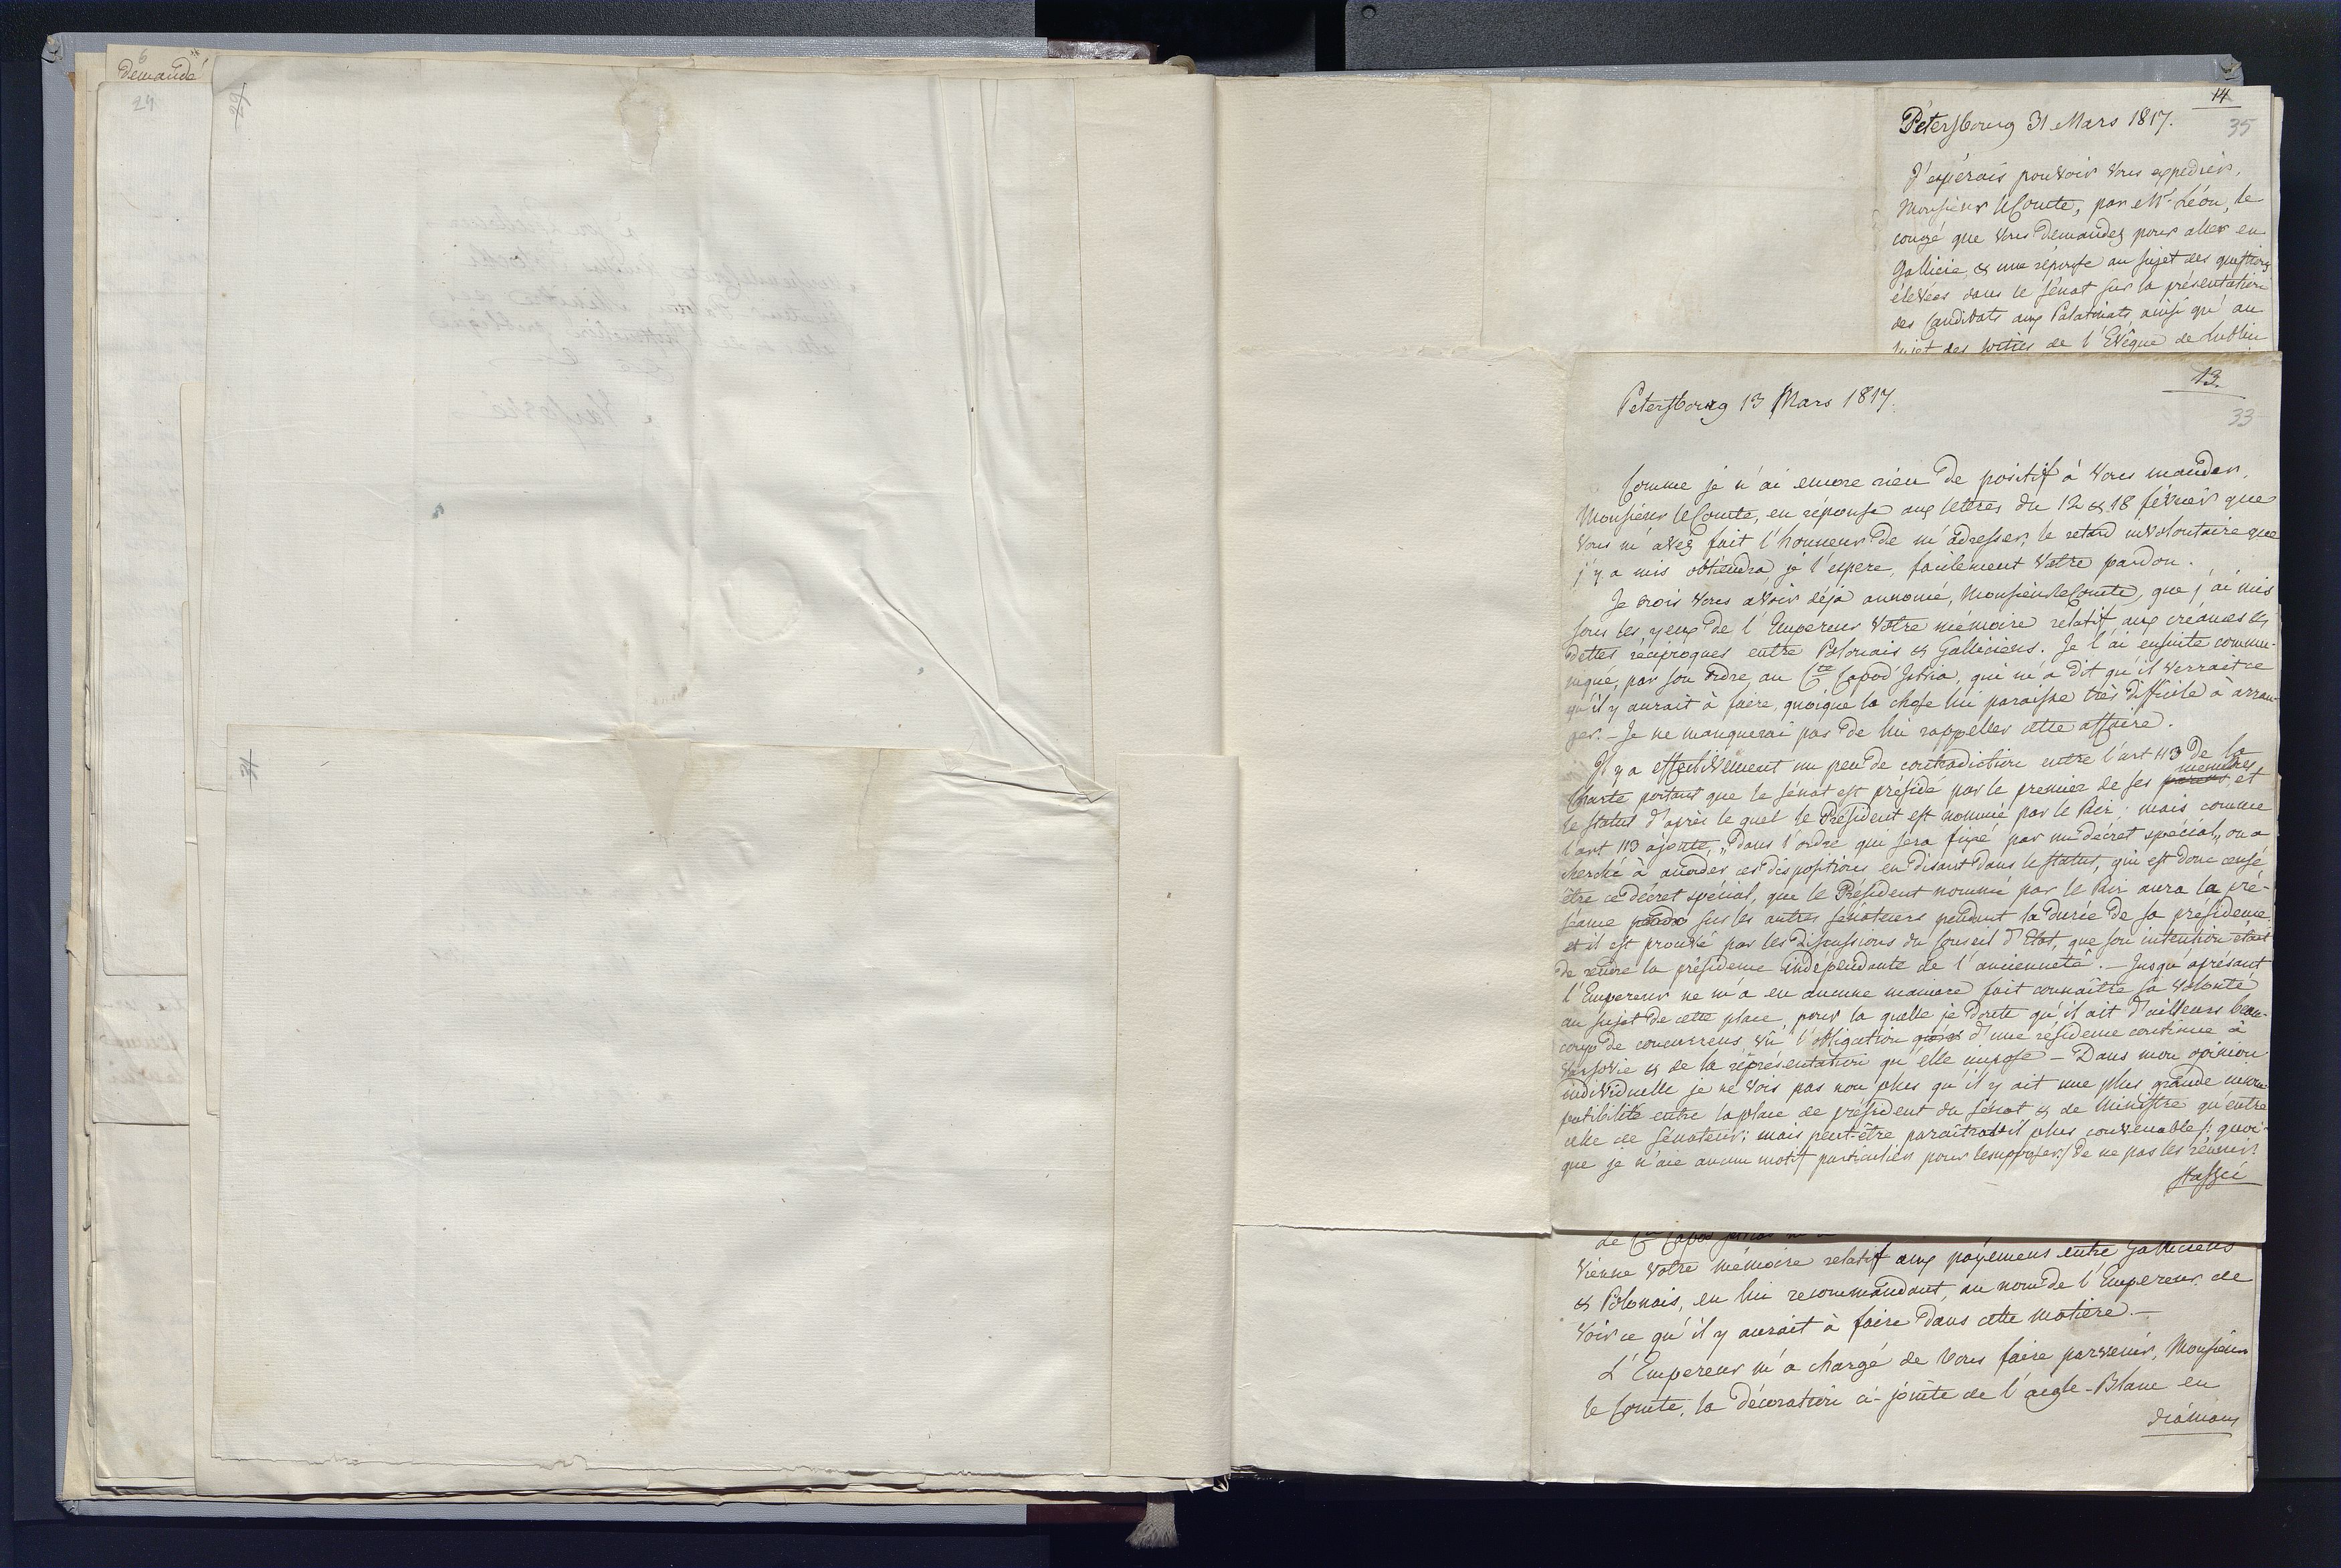 6
demandé
24
14
35
Pétersbourg 31 Mars 1817.
J'espérais pouvoir Vous expedier,
Monsieur le Comte, par Mr. Léon, le
congé que Vous demandez pour aller en
Gallicie & une réponse au sujet des questions
élevées dans le Sénat sur la présentation
des Candidats aux Palatinats ainsi qu'au
sujet des sorties de l'Evêque de Lublin
13.
33
Petersbourg 13 Mars 1817.
Comme je n'ai encore rien de positif à Vous mander,
Monsieur le Comte, en réponse aux lettres du 12 & 18 février que
Vous m'avez fait l'honneur de m'adresser, le retard involontaire que
j'y a mis obtiendra je l'espere, facilement Votre pardon.
Je crois Vous avoir déjà annoncé, Monsieur le Comte, que j'ai mis
sous les yeux de l'Empereur Votre mémoire relatif aux créances &
dettes réciproques entre Polonais & Galliciens. Je l'ai ensuite commu-
niqué, par son ordre, au Cte Capod'Istria, qui m'a dit qu'il verrait ce
qu'il y aurait à faire, quoique la chose lui paraisse très difficile à arran-
ger. - Je ne manquerai pas de lui rappeller cette affaire.
Il y a effectivement un peu de contradiction entre l'art 113 de la
membres
Charte portant que le Sénat est présidé par le premier de ses et
le statut d'après le quel le Président est nommé par le Roi; mais comme
l'art 113 ajoute, "dans l'ordre qui sera fixé par un décret spécial," on a
cherché à accorder ces dispositions en disant dans le statut, qui est donc censé
être ce décret spécial, que le Président nommé par le Roi aura la pré-
séance sur les autres sénateurs pendant la durée de sa présidence.
et il est prouvé par les discussions du Conseil d'Etat, que son intention était
de rendre la présidence indépendante de l'ancienneté. - Jusqu'aprésant
l'Empereur ne m'a en aucune maniere fait connaître sa volonté
au sujet de cette place, pour la quelle je doute qu'il ait d'ailleurs beau-
coup de concurrens, vû l'obligation d'une résidence continue à
Varsovie & de la réprésentation qu'elle impose - Dans mon opinion
individuelle je ne vois pas non plus qu'il y ait une plus grande incom-
patibilité entre la place de président du Sénat & de Ministre qu'entre
celle de Sénateur; mais peut-être paraîtrait-il plus convenable /: quoi-
que je n'aie aucun motif particulier pour le supposer :/ de ne pas les réunir.
Vienne Votre mémoire relatif aux payemens entre Galliciens
& Polonais, en lui recommandant, au nom de l'Empereur, de
voir ce qu'il y aurait à faire dans cette matière. -
L'Empereur m'a chargé de Vous faire parvenir, Monsieur
le Comte, la décoration ci-jointe de l'aigle-Blanc en
diamans